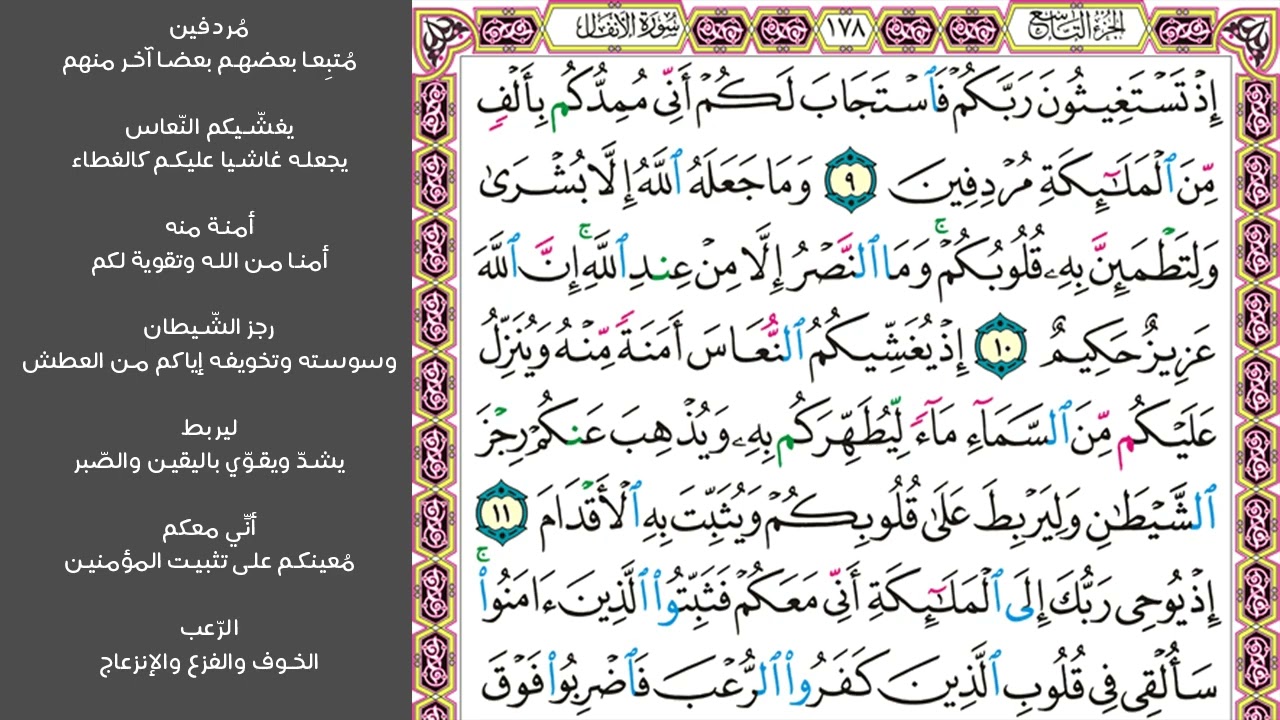 الجزء التاسع
١٧٨
سورة الأنفال
إِذْ تَسْتَغِيثُونَ رَبَّكُمْ فَٱسْتَجَابَ لَكُمْ أَنِّى مُمِدُّكُم بِأَلْفٍ
مِّنَ ٱلْمَلَـٰٓئِكَةِ مُرْدِفِينَ ٩ وَمَا جَعَلَهُ ٱللَّهُ إِلَّا بُشْرَىٰ
وَلِتَطْمَئِنَّ بِهِۦ قُلُوبُكُمْ ۚ وَمَا ٱلنَّصْرُ إِلَّا مِنْ عِندِ ٱللَّهِ ۚ إِنَّ ٱللَّهَ
عَزِيزٌ حَكِيمٌ ١٠ إِذْ يُغَشِّيكُمُ ٱلنُّعَاسَ أَمَنَةً مِّنْهُ وَيُنَزِّلُ
عَلَيْكُم مِّنَ ٱلسَّمَآءِ مَآءً لِّيُطَهِّرَكُم بِهِۦ وَيُذْهِبَ عَنكُمْ رِجْزَ
ٱلشَّيْطَـٰنِ وَلِيَرْبِطَ عَلَىٰ قُلُوبِكُمْ وَيُثَبِّتَ بِهِ ٱلْأَقْدَامَ ١١
إِذْ يُوحِى رَبُّكَ إِلَى ٱلْمَلَـٰٓئِكَةِ أَنِّى مَعَكُمْ فَثَبِّتُوا۟ ٱلَّذِينَ ءَامَنُوا۟ ۚ
سَأُلْقِى فِى قُلُوبِ ٱلَّذِينَ كَفَرُوا۟ ٱلرُّعْبَ فَٱضْرِبُوا۟ فَوْقَ
مُردفين
مُتبِعا بعضهم بعضا آخر منهم
يغشّيكم النّعاس
يجعله غاشيا عليكم كالغطاء
أمنة منه
أمنا من الله وتقوية لكم
رجز الشّيطان
وسوسته وتخويفه إياكم من العطش
ليربط
يشدّ ويقوّي باليقين والصّبر
أنّي معكم
مُعينكم على تثبيت المؤمنين
الرّعب
الخوف والفزع والإنزعاج